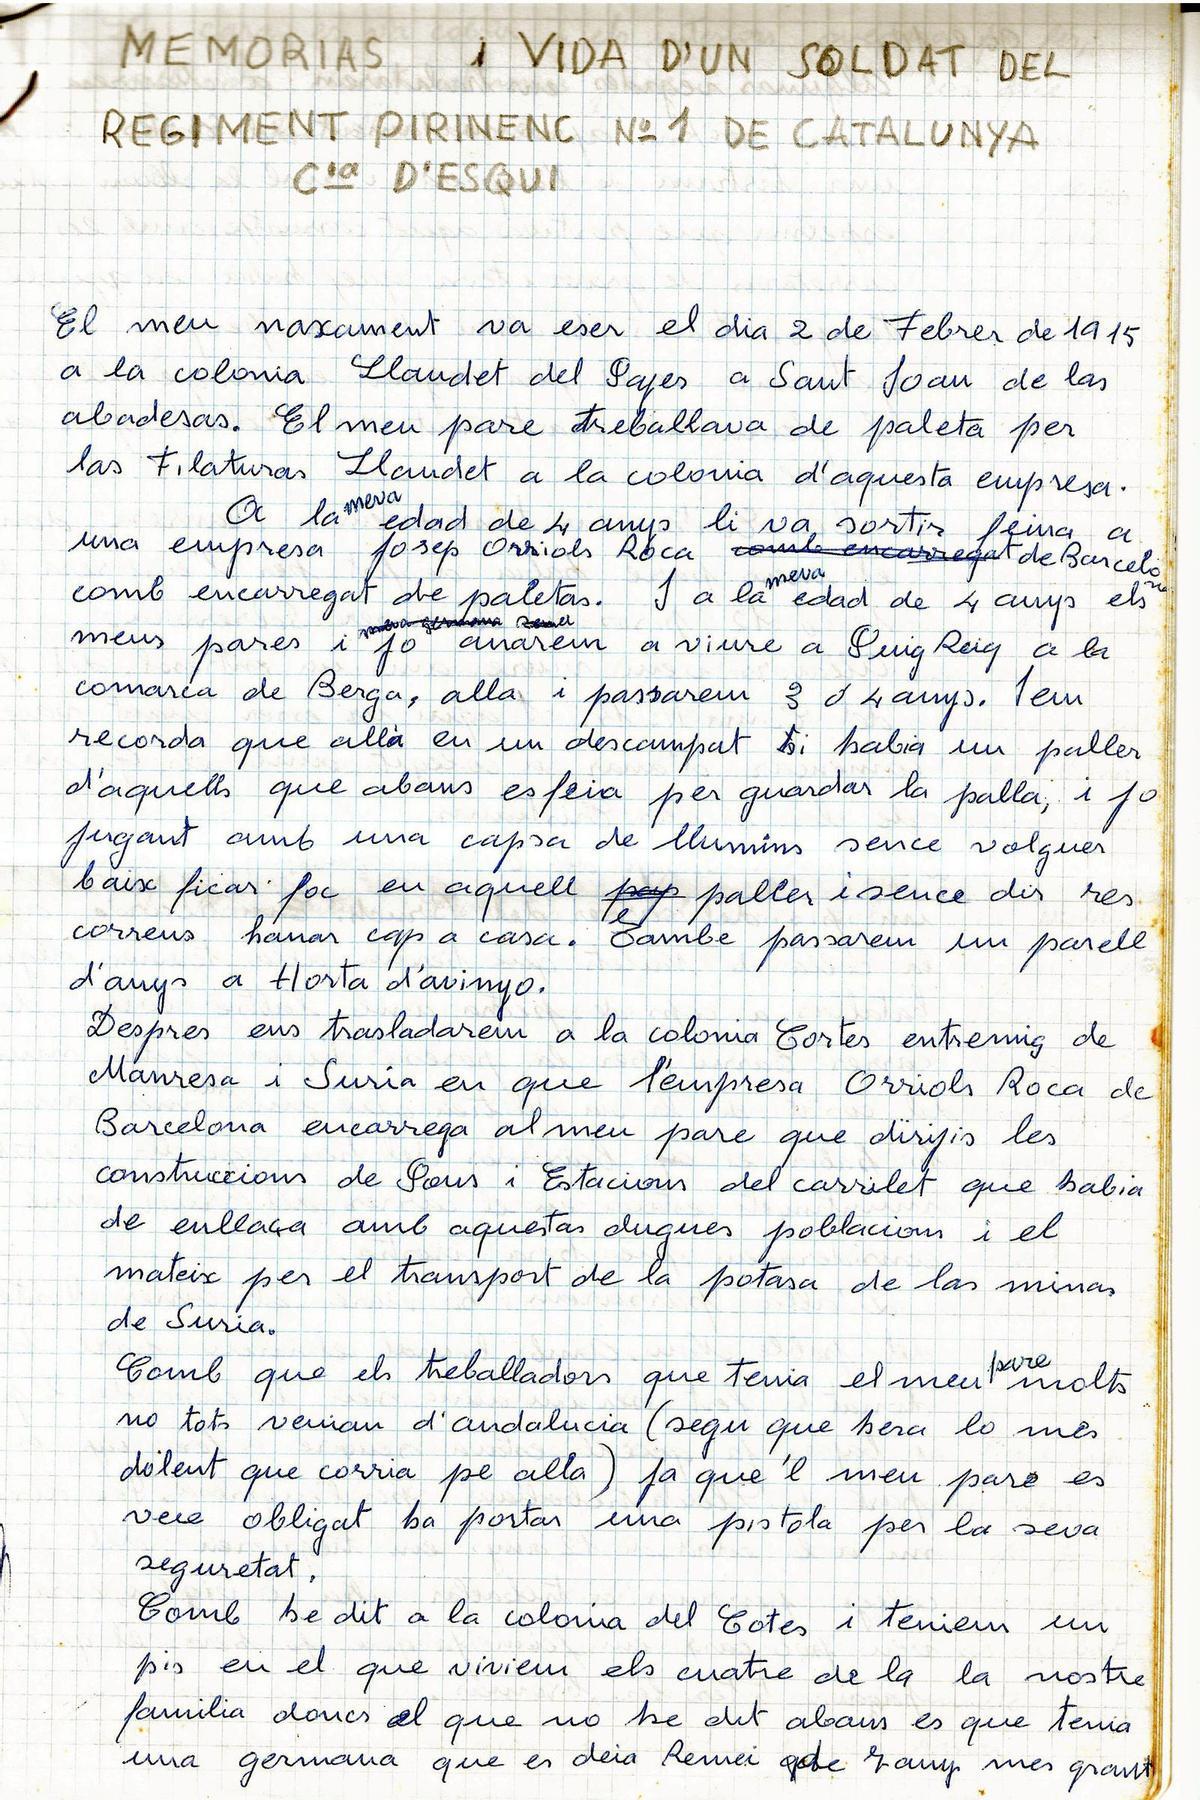 MEMORIAS i VIDA D'UN SOLDAT DEL
REGIMENT PIRINENC Nº 1 DE CATALUNYA
Cia D'ESQUI
El meu naxament va eser el dia 2 de Febrer de 1915
a la colonia Llaudet del Pajes a Sant Joan de las
abadesas. El meu pare treballava de paleta per
las Filaturas Llaudet a la colonia d'aquesta empresa.
A la meva edad de 4 anys li va sortir feina a
una empresa Josep Orriols Roca comb encarregat de Barcelona
comb encarregat de paletas. I a la meva edad de 4 anys els
meus pares i jo anarem a viure a Puig Reig a la
comarca de Berga, alla i passarem 3 ó 4 anys. I em
recorda que allà en un descampat hi habia un paller
d'aquells que abans es feia per guardar la palla, i jo
jugant amb una capsa de llumins sence volguer
baix ficar foc en aquell paller i sence dir res
correns hanar cap a casa. També passarem un parell
d'anys a Horta d'avinyo.
Despres ens trasladarem a la colonia Cortes entremig de
Manresa i Suria en que l'empresa Orriols Roca de
Barcelona encarrega al meu pare que dirijis les
construccions de Pons i Estacions del carrilet que habia
de enllaça amb aquestas dugues poblacions i el
mateix per el transport de la potasa de las minas
de Suria.
Comb que els treballadors que tenia el meu pare molts
no tots venian d'andalucia (segu que hera lo més
dolent que corria pe alla) ja que'l meu pare es
veie obligat ha portar una pistola per la seva
seguretat.
Comb he dit a la colonia del Cotes i teniem un
pis en el que viviem els cuatre de la la nostre
familia doncs el que no he dit abans es que tenia
una germana que es deia Remei de 7 anys mes grant